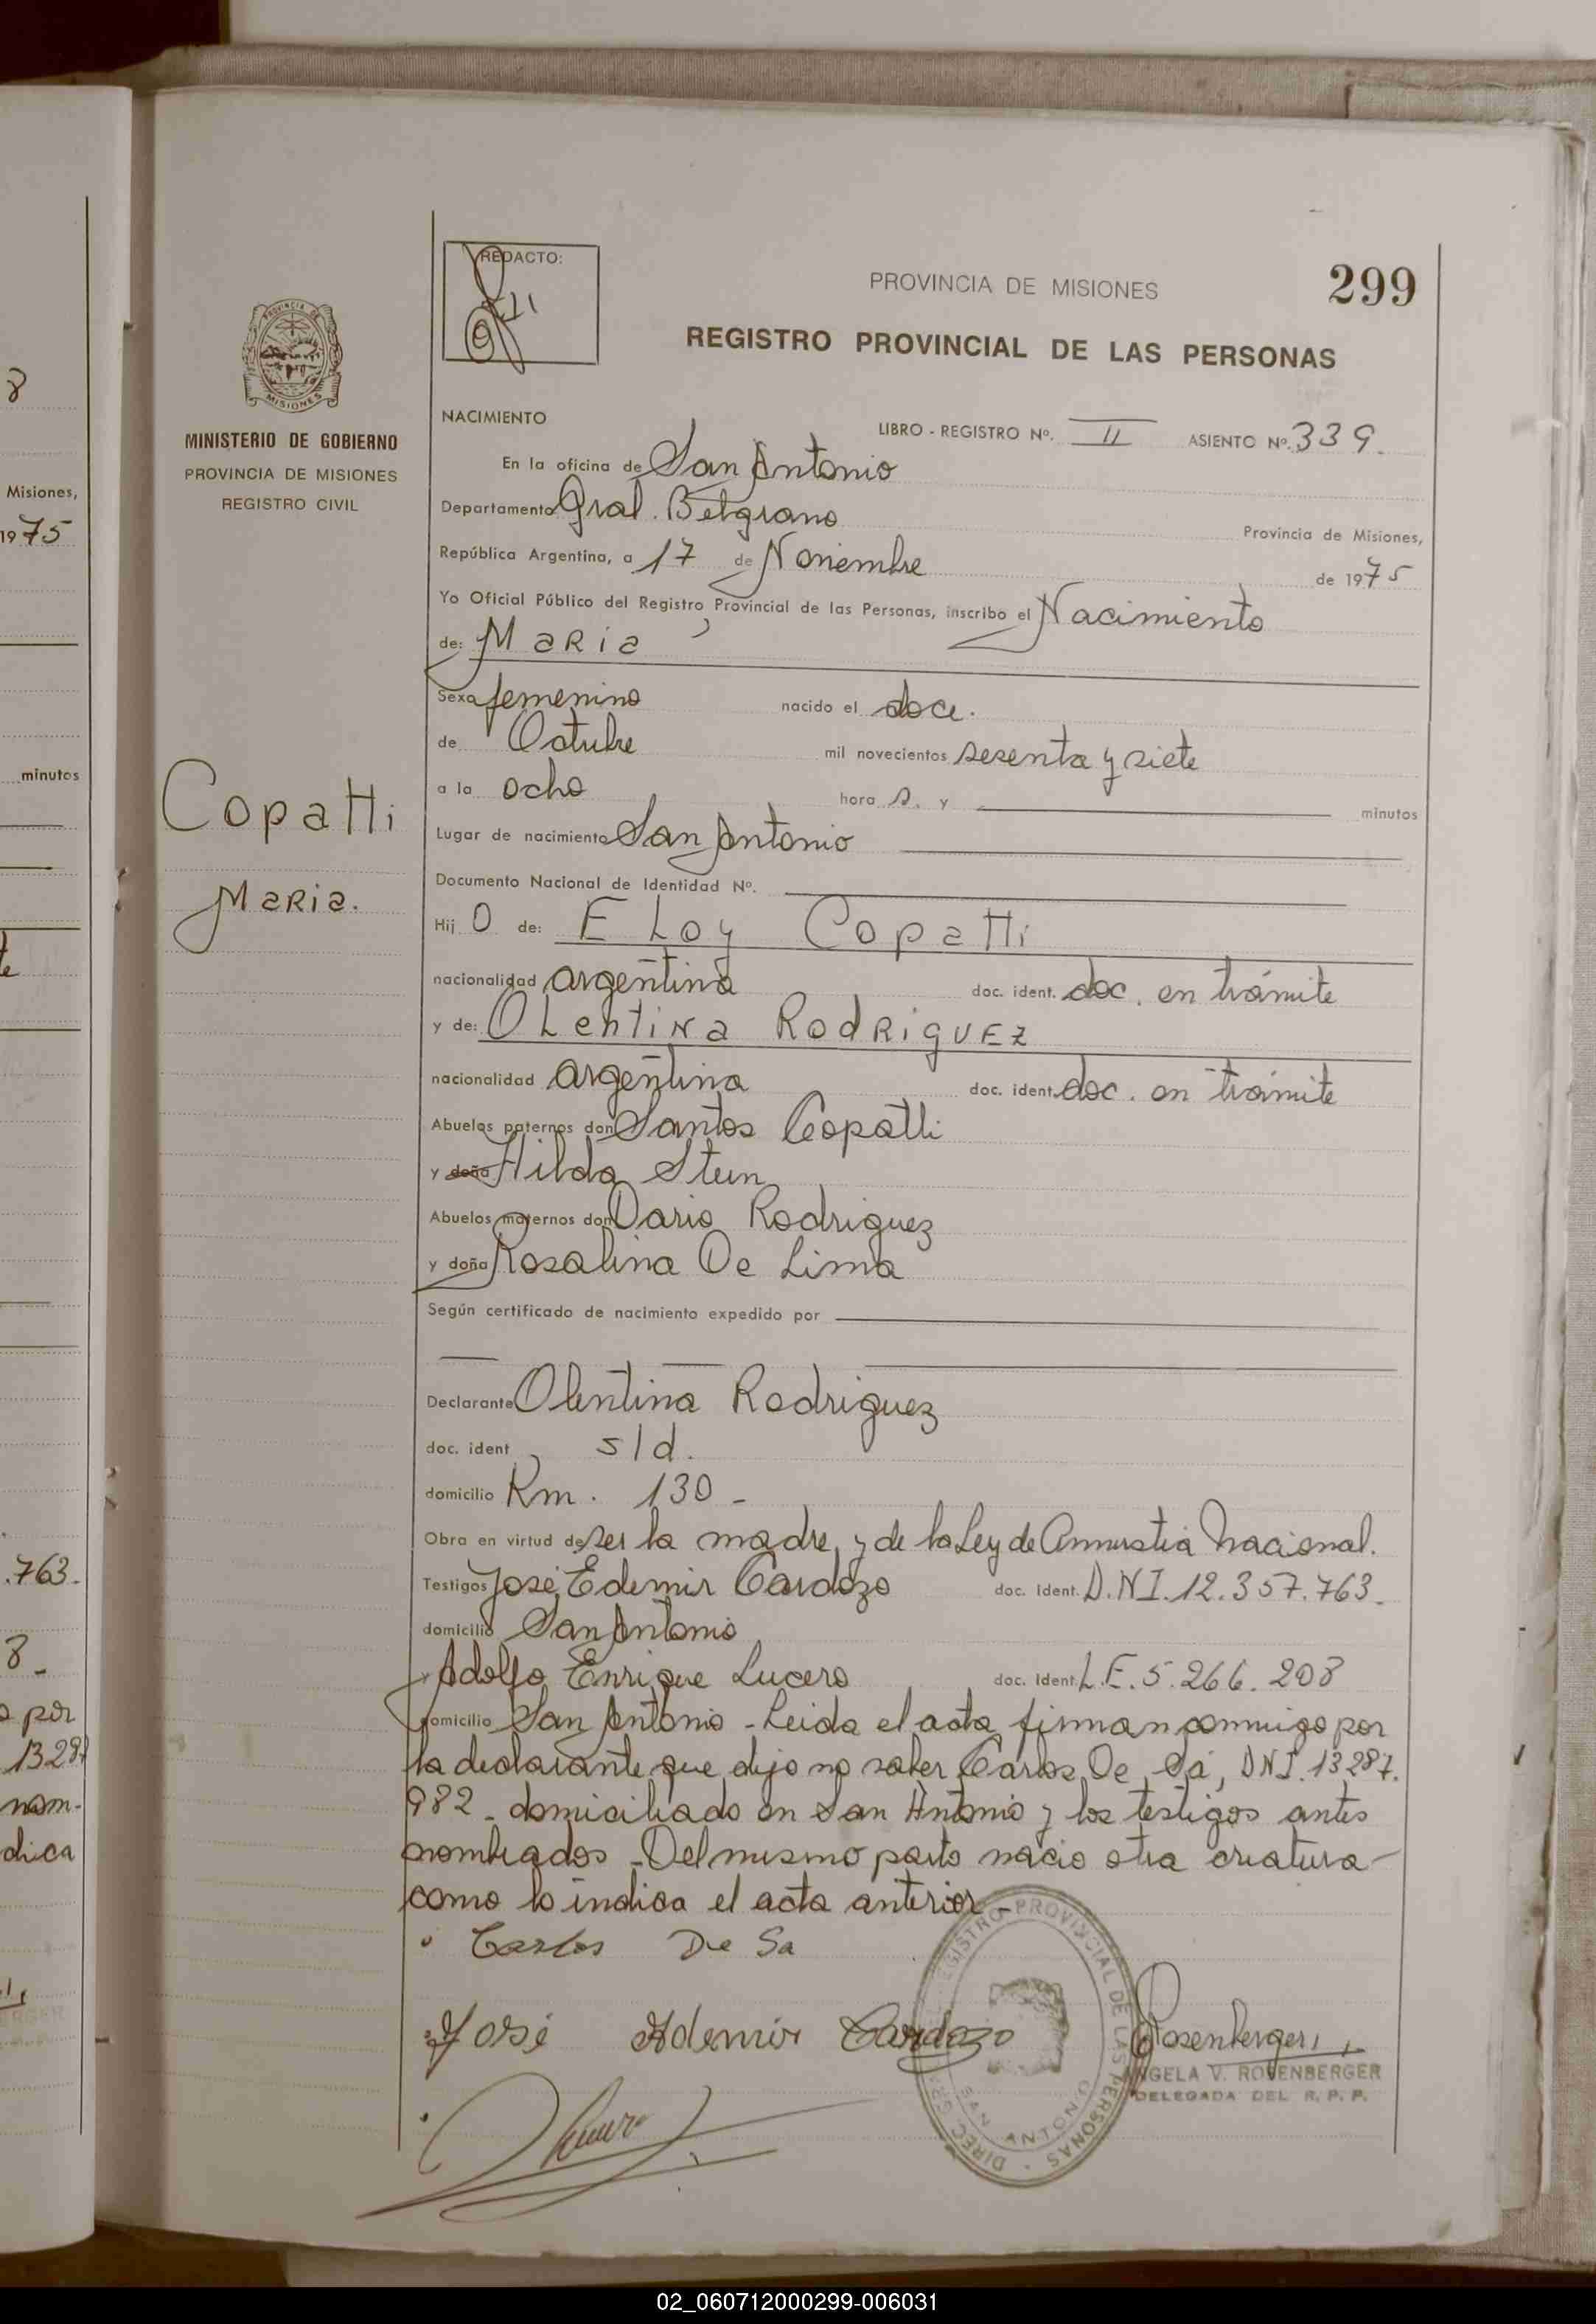 REDACTO:
PROVINCIA DE MISIONES
299
REGISTRO PROVINCIAL DE LAS PERSONAS
PROVINCIA DE
MISIONES
MINISTERIO DE GOBIERNO
PROVINCIA DE MISIONES
REGISTRO CIVIL
NACIMIENTO
LIBRO - REGISTRO Nº. II ASIENTO Nº. 339.
En la oficina de San Antonio
Departamento Gral. Belgrano
Provincia de Misiones,
República Argentina, a 17 de Noviembre de 1975
Yo Oficial Público del Registro Provincial de las Personas, inscribo el Nacimiento
de: Maria
Sexo femenino nacido el doce.
de Octubre mil novecientos sesenta y siete
a la ocho hora s. y minutos
Copatti
Maria.
Lugar de nacimiento San Antonio
Documento Nacional de Identidad Nº.
Hij o de: Eloy Copatti
nacionalidad argentina doc. ident. doc. en trámite
y de: Olentina Rodriguez
nacionalidad argentina doc. ident. doc. en trámite
Abuelos paternos don Santos Copatti
y doña Hilda Stein
Abuelos maternos don Dario Rodriguez
y doña Rosalina De Lima
Según certificado de nacimiento expedido por
Declarante Olentina Rodriguez
doc. ident s/d.
domicilio Km. 130 -
Obra en virtud de ser la madre, y de la Ley de Amnistia Nacional.
Testigos José Edemir Cardozo doc. Ident. D.N.I. 12.357.763.
domicilio San Antonio
y Adolfo Enrique Lucero doc. Ident. L.E. 5.266.208
domicilio San Antonio - Leida el acta firman conmigo por
la declarante que dijo no saber Carlos De Sá, DNI. 13287.
982 - domiciliado en San Antonio y los testigos antes
nombrados - Del mismo parto nacio otra criatura -
como lo indica el acta anterior -
Carlos De Sa
José Ademir Cardozo
Rosenberger
ANGELA V. ROSENBERGER
DELEGADA DEL R. P. P.
REGISTRO PROVINCIAL DE LAS PERSONAS
SAN ANTONIO
Misiones,
1975
minutos
.763.
8 -
o por
1328
nom-
dica
02_060712000299-006031